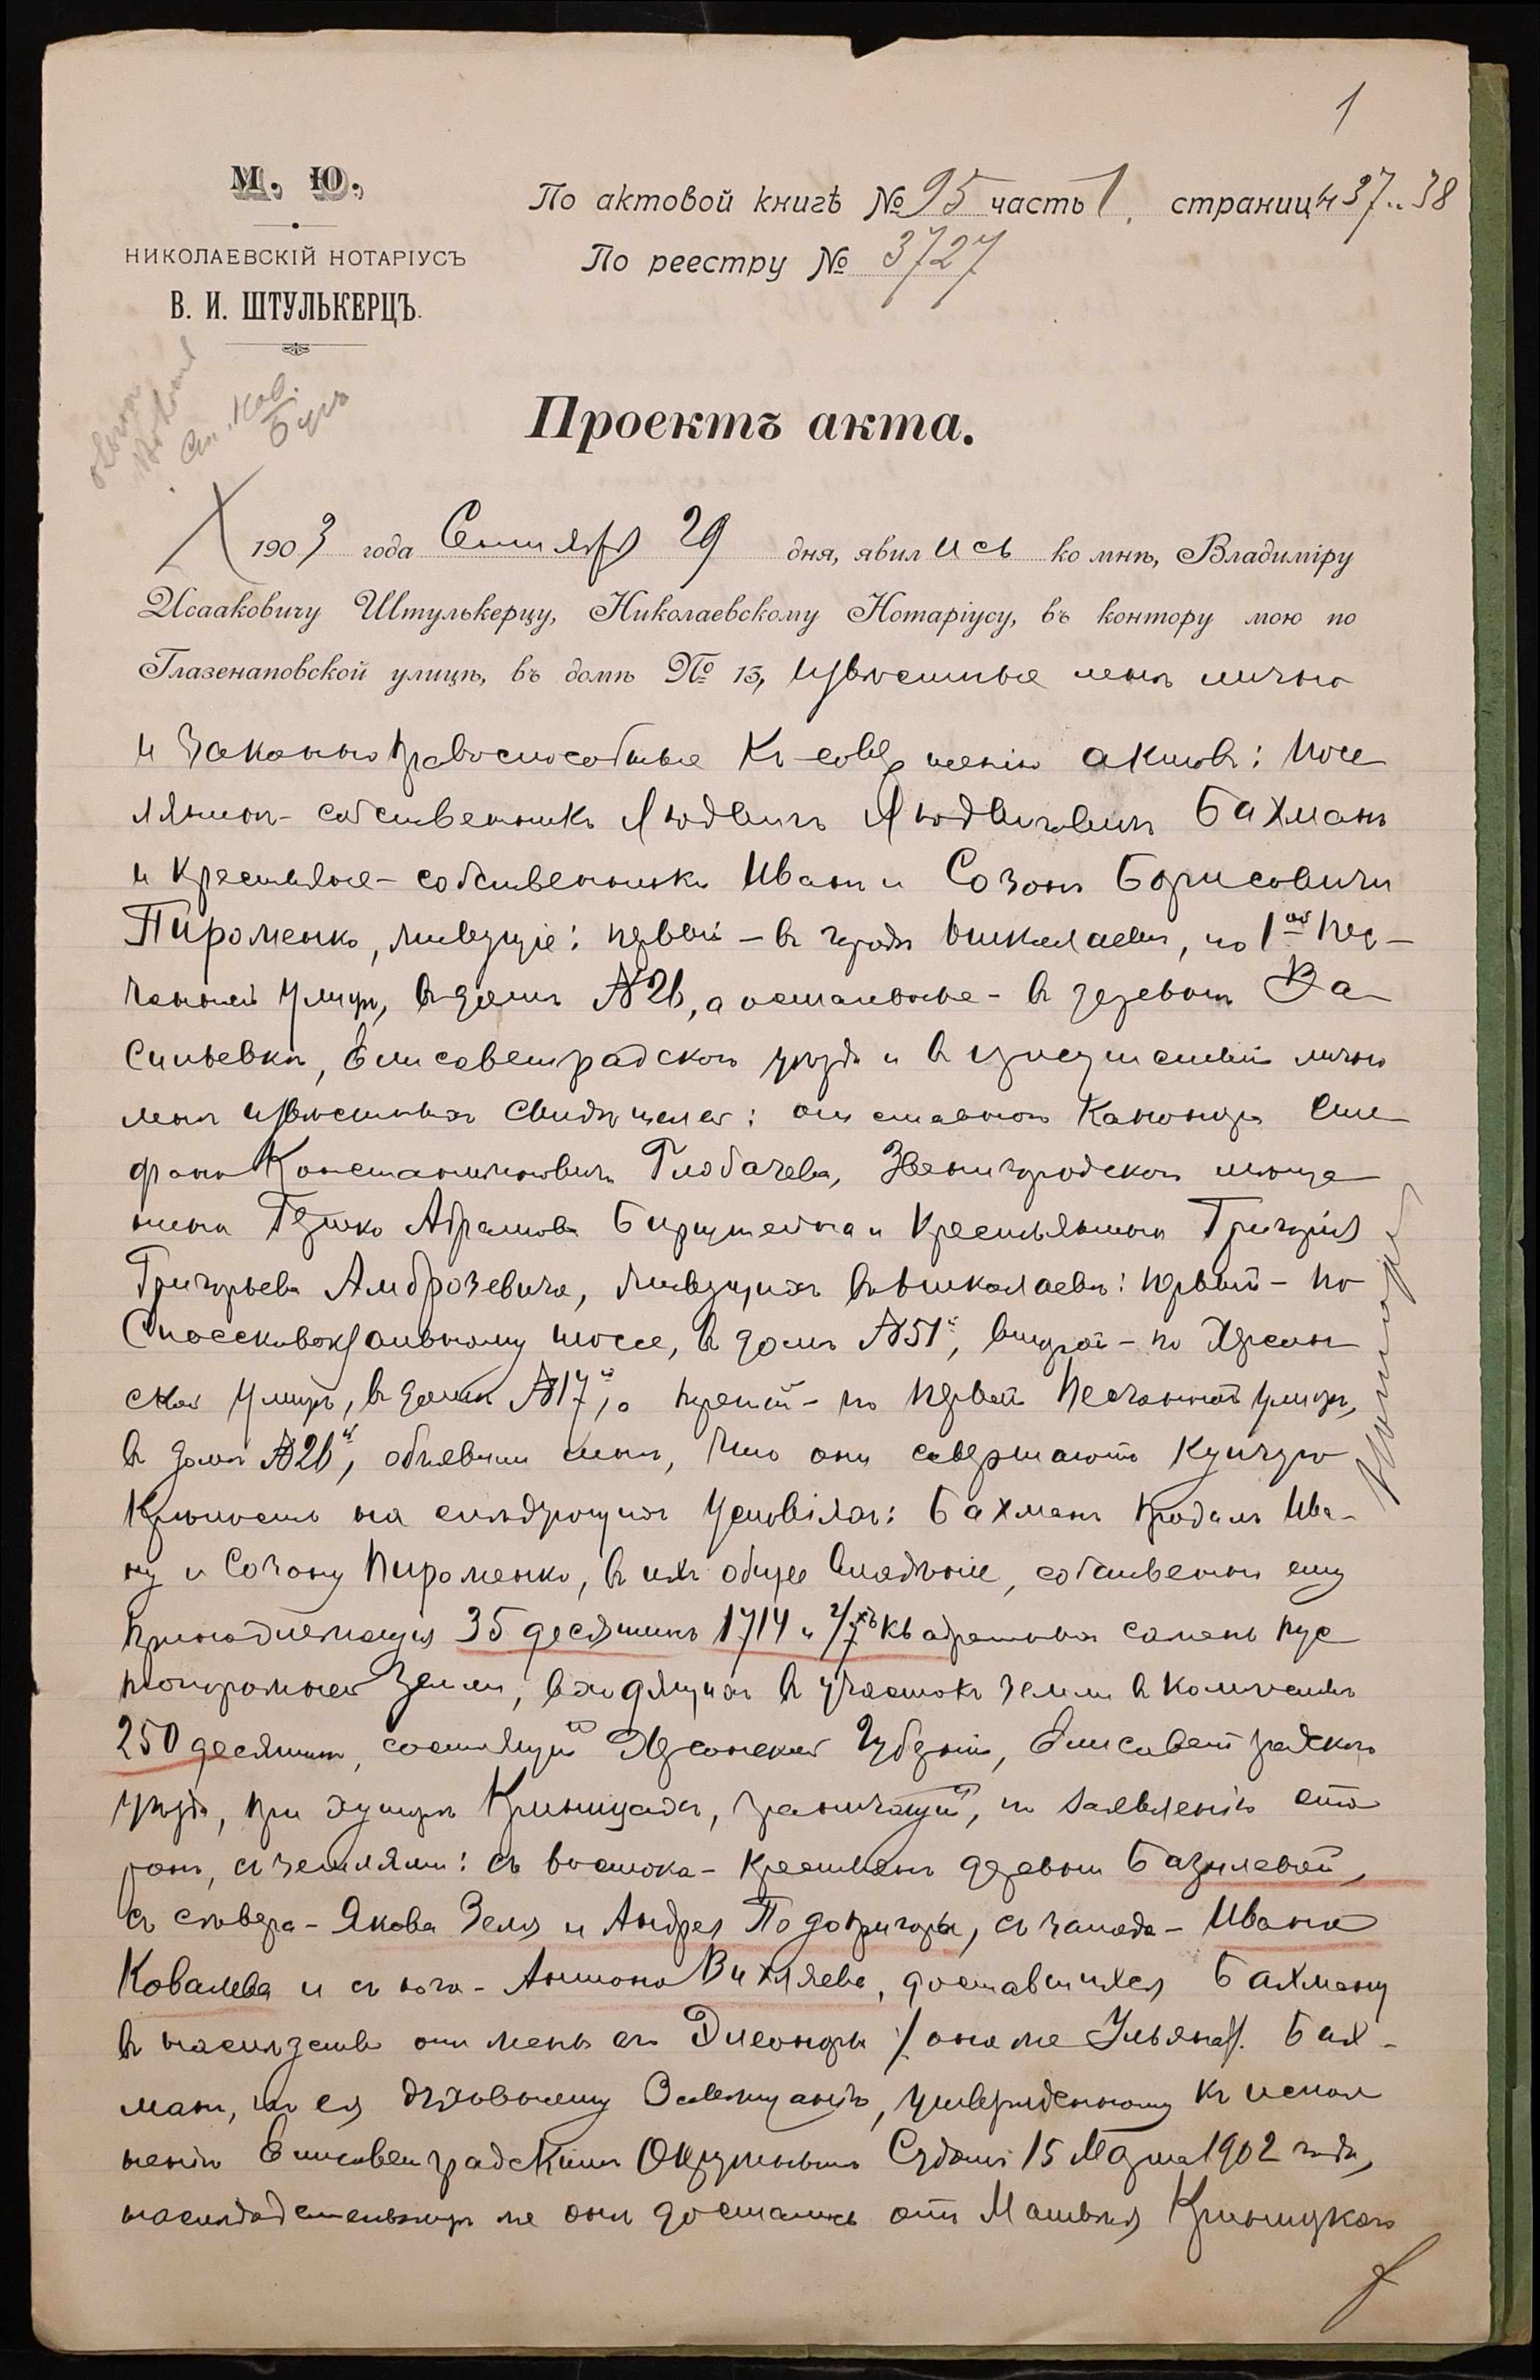 1
М. Ю.
НИКОЛАЕВСКІЙ НОТАРІУСЪ
В. И. ШТУЛЬКЕРЦЪ.
По актовой книгѣ № 95 часть 1, страницы 37 и 38
По реестру № 3727
Проектъ акта.
1903 года Сентября 29 дня, явились ко мнѣ, Владиміру
Исааковичу Штулькерцу, Николаевскому Нотаріусу, въ контору мою по
Глазенаповской улицѣ, въ домѣ № 13, извѣстные мнѣ лично
и законно правоспособные къ совершенію актовъ: посе
лянинъ-собственникъ Людвигъ Людвиговичъ Бахманъ
и крестьяне-собственники Иванъ и Созонъ Борисовичи
Пироменко, живущіе: первый – въ городѣ Николаевѣ, по 1ой Пес-
чанной улицѣ, въ домѣ № 26, а остальные – въ деревнѣ Ва
сильевкѣ, Елисаветградскаго уѣзда и въ присутствіи лично
мнѣ извѣстныхъ свидѣтелей: отставного Канонира Сте
фана Константиновича Глобачева, Звенигородскаго мѣща
нина Абрамова и крестьянина Григорія
Григорьева Амброзевича, живущихъ въ Николаевѣ: первый – по
Спасскому шоссе, въ домѣ № 51й, второй – по Херсон
ской улицѣ, въ домѣ № 17й, а третій – по Первой Песчанной улицѣ,
въ домѣ № 26й, объявили мнѣ, что они совершаютъ купчую
крѣпость на слѣдующихъ условіяхъ: Бахманъ продалъ Ива-
ну и Созону Пироменко, въ ихъ общее владѣніе, собственныя ему
принадлежащія 35 десятинъ 1714 и 2/7хъ квадратныхъ саженъ пус
топорожней земли, входящихъ въ участокъ земли въ количествѣ
250 десятинъ, состоящій Херсонской губерніи, Елисаветградскаго
уѣзда, при хуторѣ Криницахъ, граничащій, по заявленію сто
ронъ, съ землями: съ востока – крестьянъ деревни Базилевой,
съ сѣвера – Якова Зеля и Андрея Подопригоры, съ запада – Ивана
Ковалева и съ юга – Антона Вихляева, доставшихся Бахману
въ наслѣдство отъ жены его /она же Ульяна/. Бах-
манъ, по ея духовному завѣщанію, утвержденному къ испол
ненію Елисаветградскимъ Окружнымъ Судомъ 15 Марта 1902 года,
наслѣдодательницѣ же онѣ достались отъ Матвѣя Криницкаго